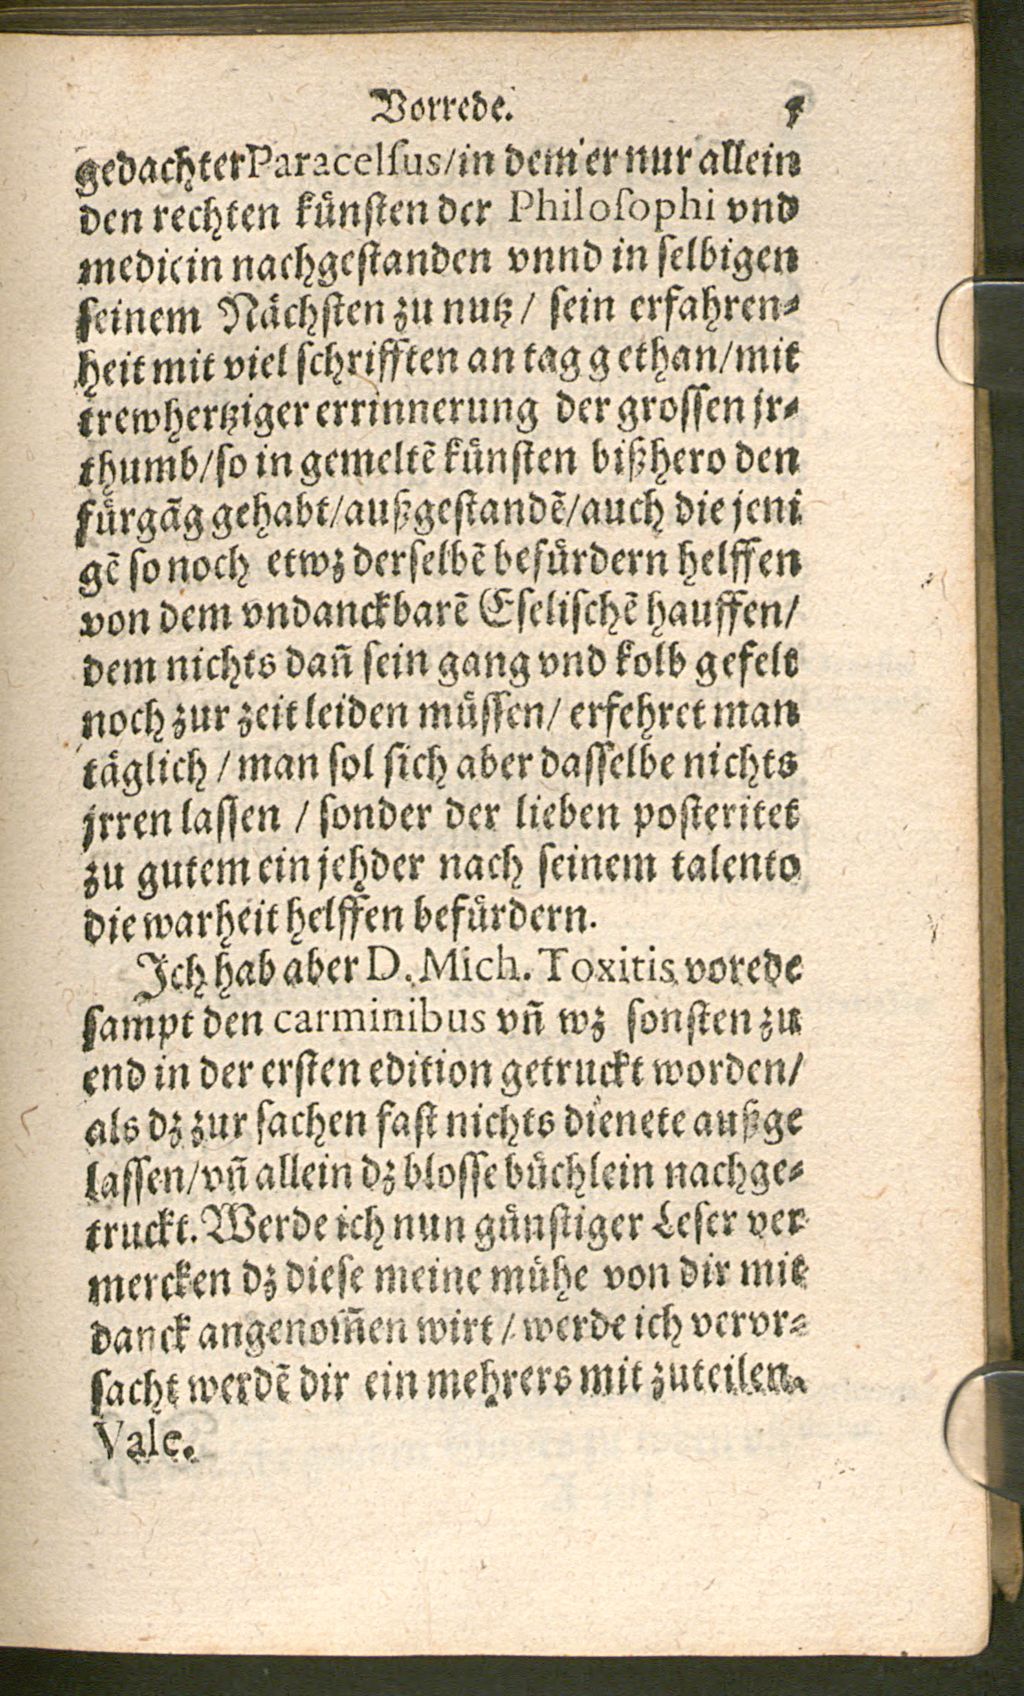 Vorrede. 5
gedachter Paracelsus/in dem er nur allein
den rechten künsten der Philosophi vnd
medicin nachgestanden vnnd in selbigen
seinem Nächsten zu nutz / sein erfahren-
heit mit viel schrifften an tag gethan/mit
trewhertziger errinnerung der grossen jr-
thumb/so in gemeltē künsten bißhero den
fürgāg gehabt/außgestandē/auch die jeni
gē so noch etwz derselbē befürdern helffen
von dem vndanckbarē Eselischē hauffen/
dem nichts dañ sein gang vnd kolb gefelt
noch zur zeit leiden müssen/ erfehret man
täglich / man sol sich aber dasselbe nichts
jrren lassen / sonder der lieben posteritet
zu gutem ein jehder nach seinem talento
die warheit helffen befürdern.
Ich hab aber D. Mich. Toxitis vorede
sampt den carminibus vñ wz sonsten zu
end in der ersten edition getruckt worden/
als dz zur sachen fast nichts dienete außge
lassen/vñ allein dz blosse büchlein nachge-
truckt. Werde ich nun günstiger Leser ver
mercken dz diese meine mühe von dir mit
danck angenom̃en wirt / werde ich vervr-
sacht werdē dir ein mehrers mit zuteilen.
Vale.